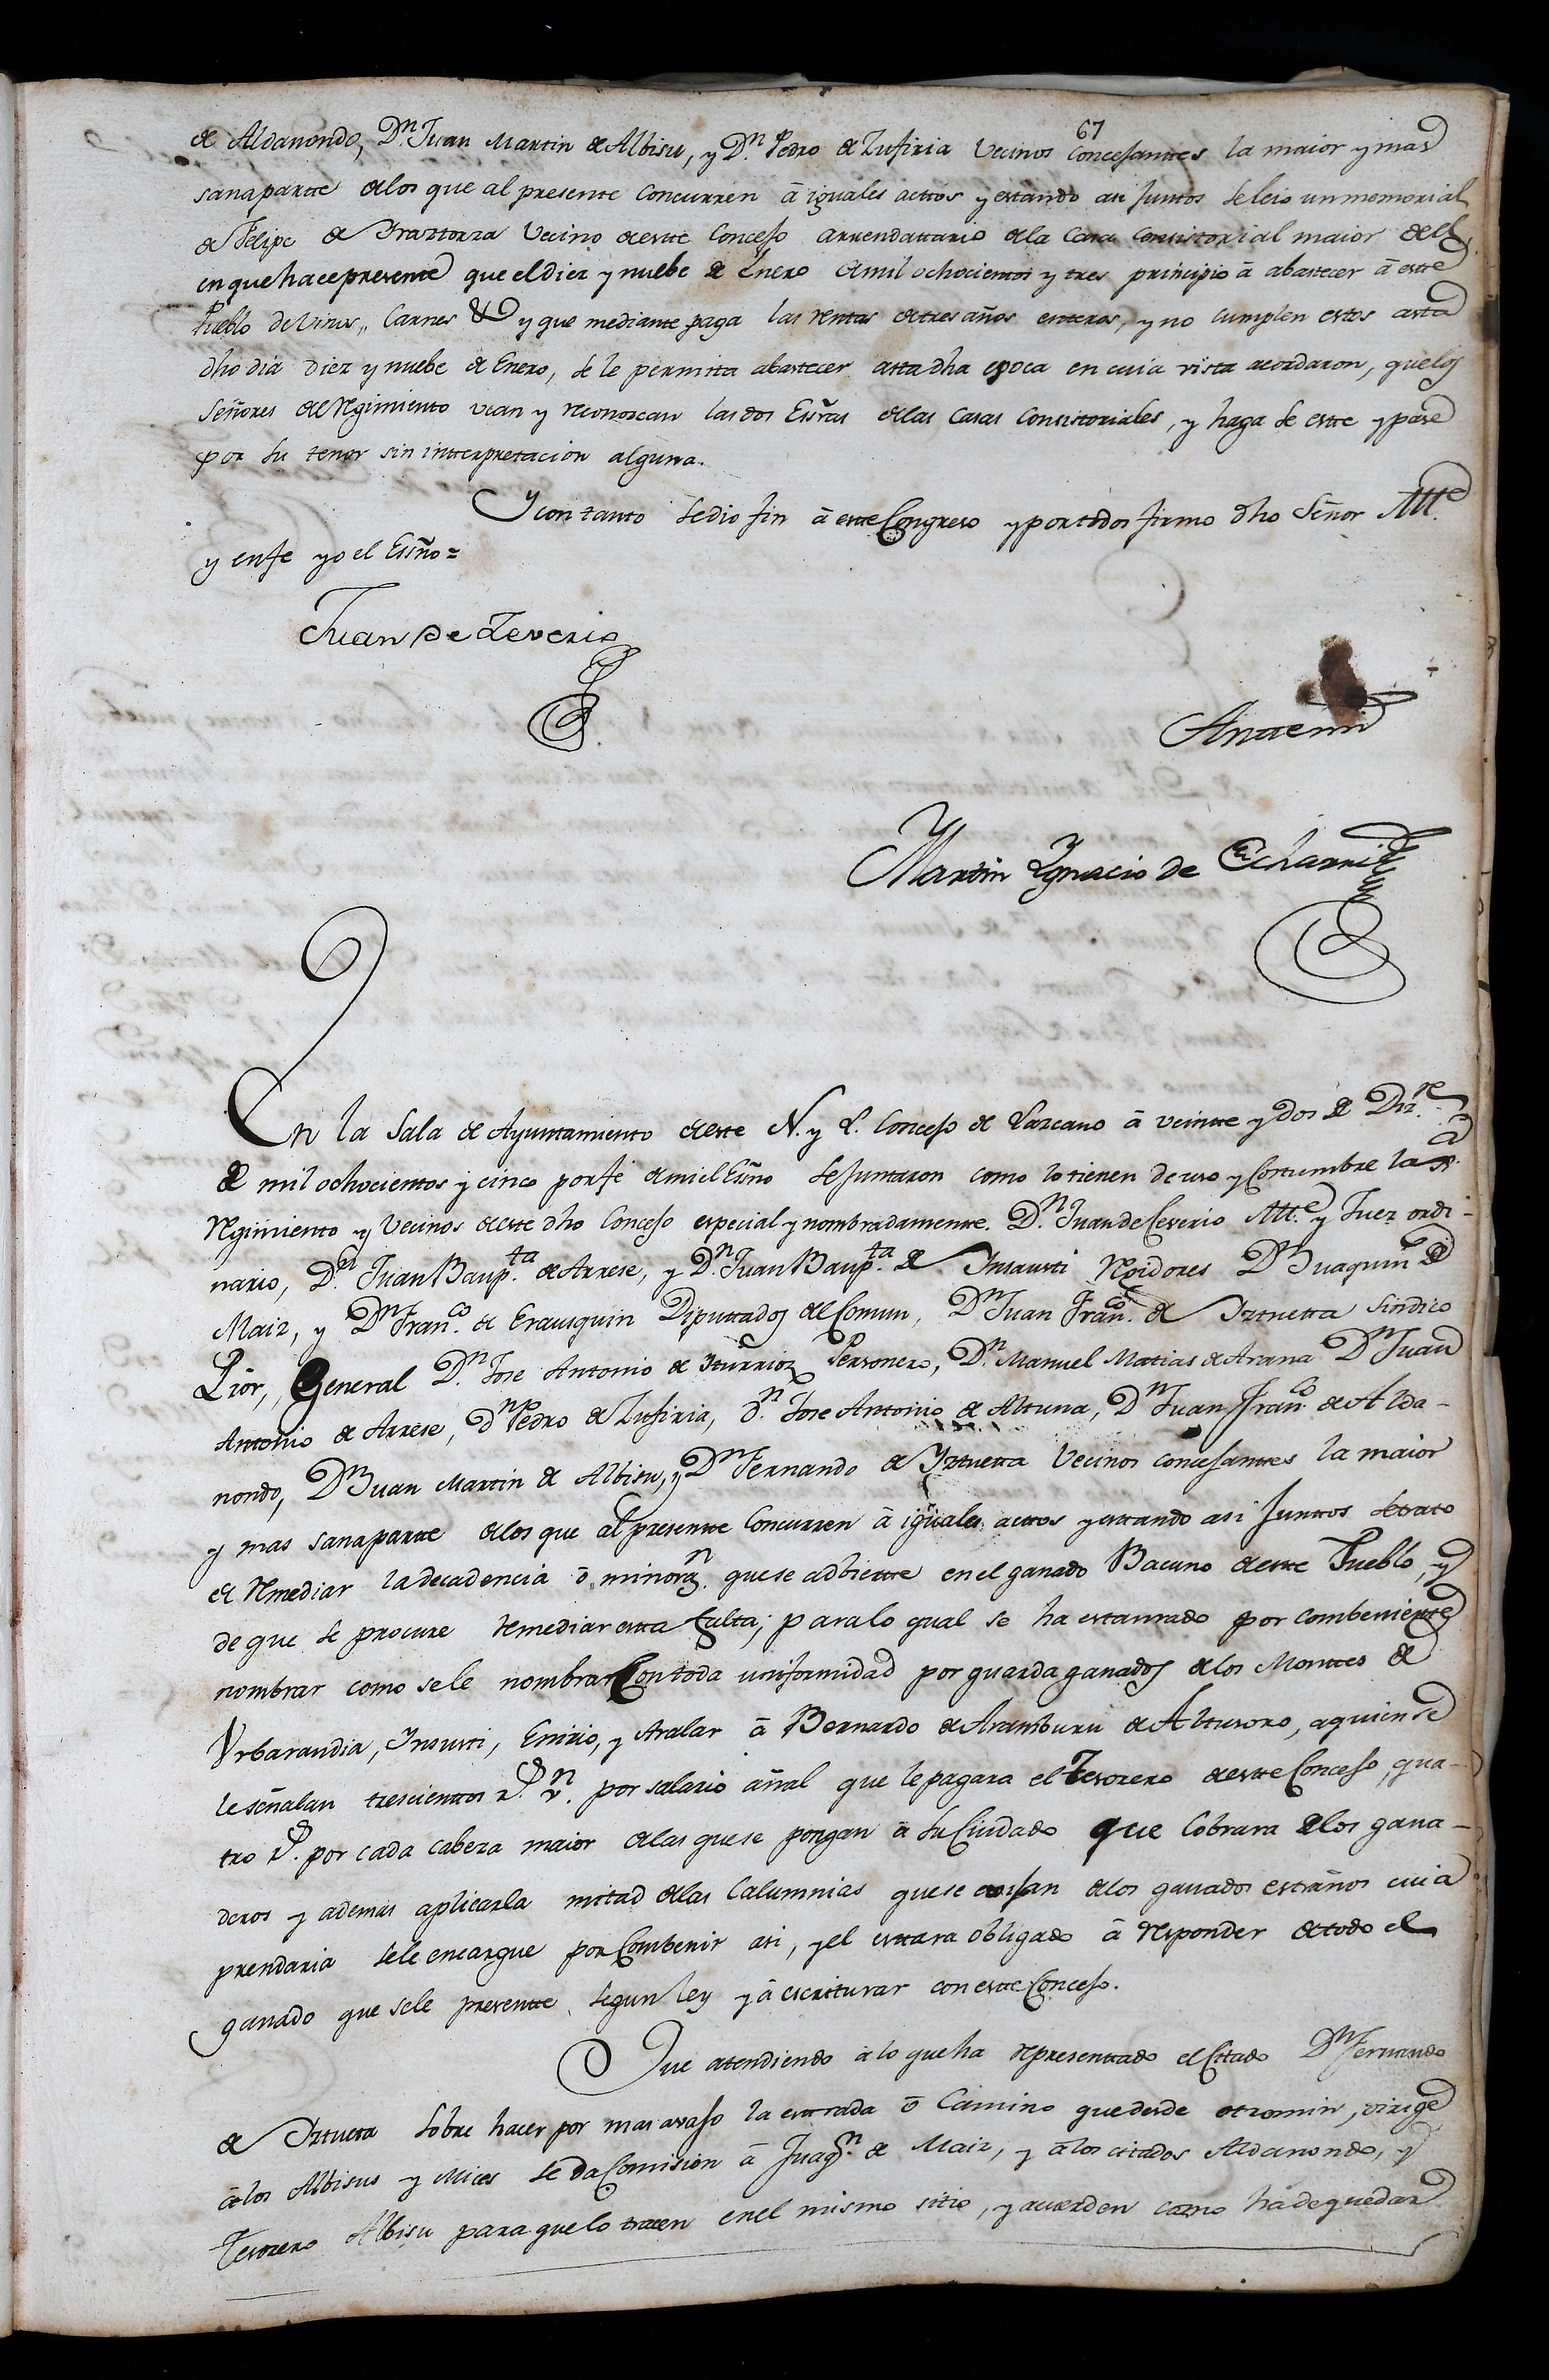 67
de Aldanondo, Dn. Juan Martin de Albisu, y Dn. Pedro de Zufiria Vecinos Concejantes la maior y mas
sana partte delos que al presente Concurren â iguales acttos y estando asi Junttos se leio un memorial
de Felipe de Yraztorza Vecino deeste Concejo arrendattario dela Casa Consistorial maior de el
en que hace presente que el diez y nuebe de Enero de mil ochocientos y tres principio â abastecer â este
Pueblo de Vinos, Carnes & y que mediante paga las rentas de tres años entteros, y no cumplen estos asta
dho dia diez y nuebe de Enero, se le permitta abastecer asta dha epoca en cuia vista acordaron, que los
Señores del Regimiento vean y reconozcan las dos Essras delas Casas Consistoriales, y haga se estte y pase
por su tenor sin intterpretacion alguna.
Y con tanto se dio fin â este Congreso y por todos firmo dho Señor Alle
y enfe yo el Essño =
Juan de Zeverio
Antte mi
Martin Ygnacio de Echarri
En la Sala de Ayunttamiento deeste N. y L. Concejo de Lazcano â veintte y dos de Dize.
de mil ochocientos y cinco por fe de mi el Essño se juntaron como lo tienen de uso y Costumbre la
Regimiento y Vecinos deeste dho Concejo especial y nombradamente. Dn. Juan de Ceverio Alle. y Juez ordi-
nario, Dn. Juan Baupta. de Arrese, y Dn. Juan Baupta. de Insausti Regidores Dn Juaquin de
Maiz, y Dn Franco. de Erausquin Diputtados del Comun, Dn Juan Franco. de Yztuetta Sindico
Pror, General Dn. Jose Antonio de Yturrioz Personero, Dn. Manuel Matias de Arana Dn Juan
Antonio de Arrese, Dn Pedro de Zufiria, Dn. Jose Antonio de Altuna, Dn Juan Franco de Alda-
nondo, Dn Juan Martin de Albisu, y Dn Fernando de Yztuetta Vecinos concejanttes la maior
y mas sana partte delos que al presentte Concurren â iguales acttos y esttando asi Junttos se trato
de Remediar la decadencia ô minoran. que se adbiertte en el ganado Bacuno deeste Pueblo, y
de que se procure remediar esta falta; para lo qual se ha estaurado por combeniente
nombrar como se le nombrar Con toda uniformidad por guarda ganados delos Monttes de
Urbarandia, Insusti, Enirio, y Aralar â Bernardo de Aramburu de Altusoro, a quien se
le señalan trescienttos rs. vn. por salario añal que le pagara el Tesorero deeste Concejo, qua-
tro rs. por cada cabeza maior delas que se pongan â su Cuidado que Cobrara delos gana-
deros y ademas aplicarla mitad delas Calumnias que se delos ganados estraños cuia
prendaria se le encargue por Combenir asi, y el esttara obligado â responder de todo el
ganado que se le presentte segun ley y â escriturar con este Concejo.
Que atendiendo a lo que ha representtado el Citado Dn Fernando
de Yztueta sobre hacer por mas avajo la enttrada ô Camino que desde otromin, dirige
â los Albisus y Mices se da Comision â Juaqn. de Maiz, y â los citados Aldanondo, y
Tesorero Albisu para que lo tracen en el mismo sitio, y acuerden como ha de quedar